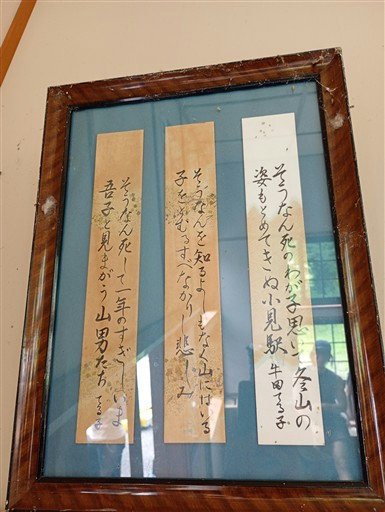 そうなん死のわが子思いて登山の
姿もとめてきぬ小見駅 牛田てる子
そうなんを知るよしもなく山にはいる
子を むるすべなかりし悲しみ
そうなん死して一年のすぎしいま
吾子と見まがう山男たち てる子